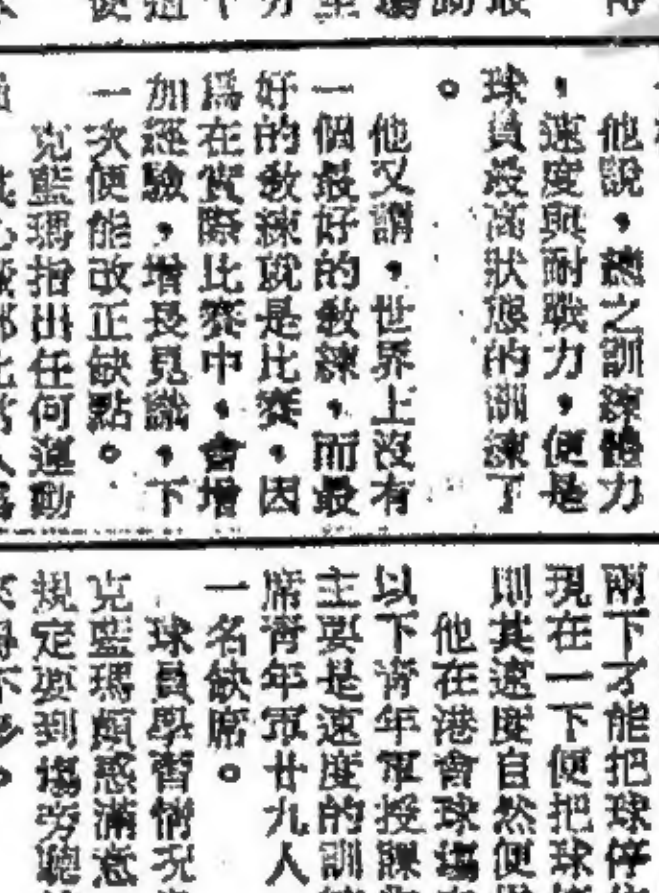 他說，總之訓練體力
，速度與耐戰力，便是
球員最高狀態的訓練了
。
他又謂，世界上沒有
一個最好的教練，而最
好的教練就是比賽，因
爲在實際比賽中，會增
加經驗，增長見識，下
一次便能改正缺點。
克藍瑪指出任何運動
兩下才能把球停
現在一下便把球
則其速度自然便
他在港會球場
以下青年軍授課
主要是速度的訓
席青年軍廿九人
一名缺席。
球員學習情況
克藍瑪頗感滿意
規定要到場旁聽